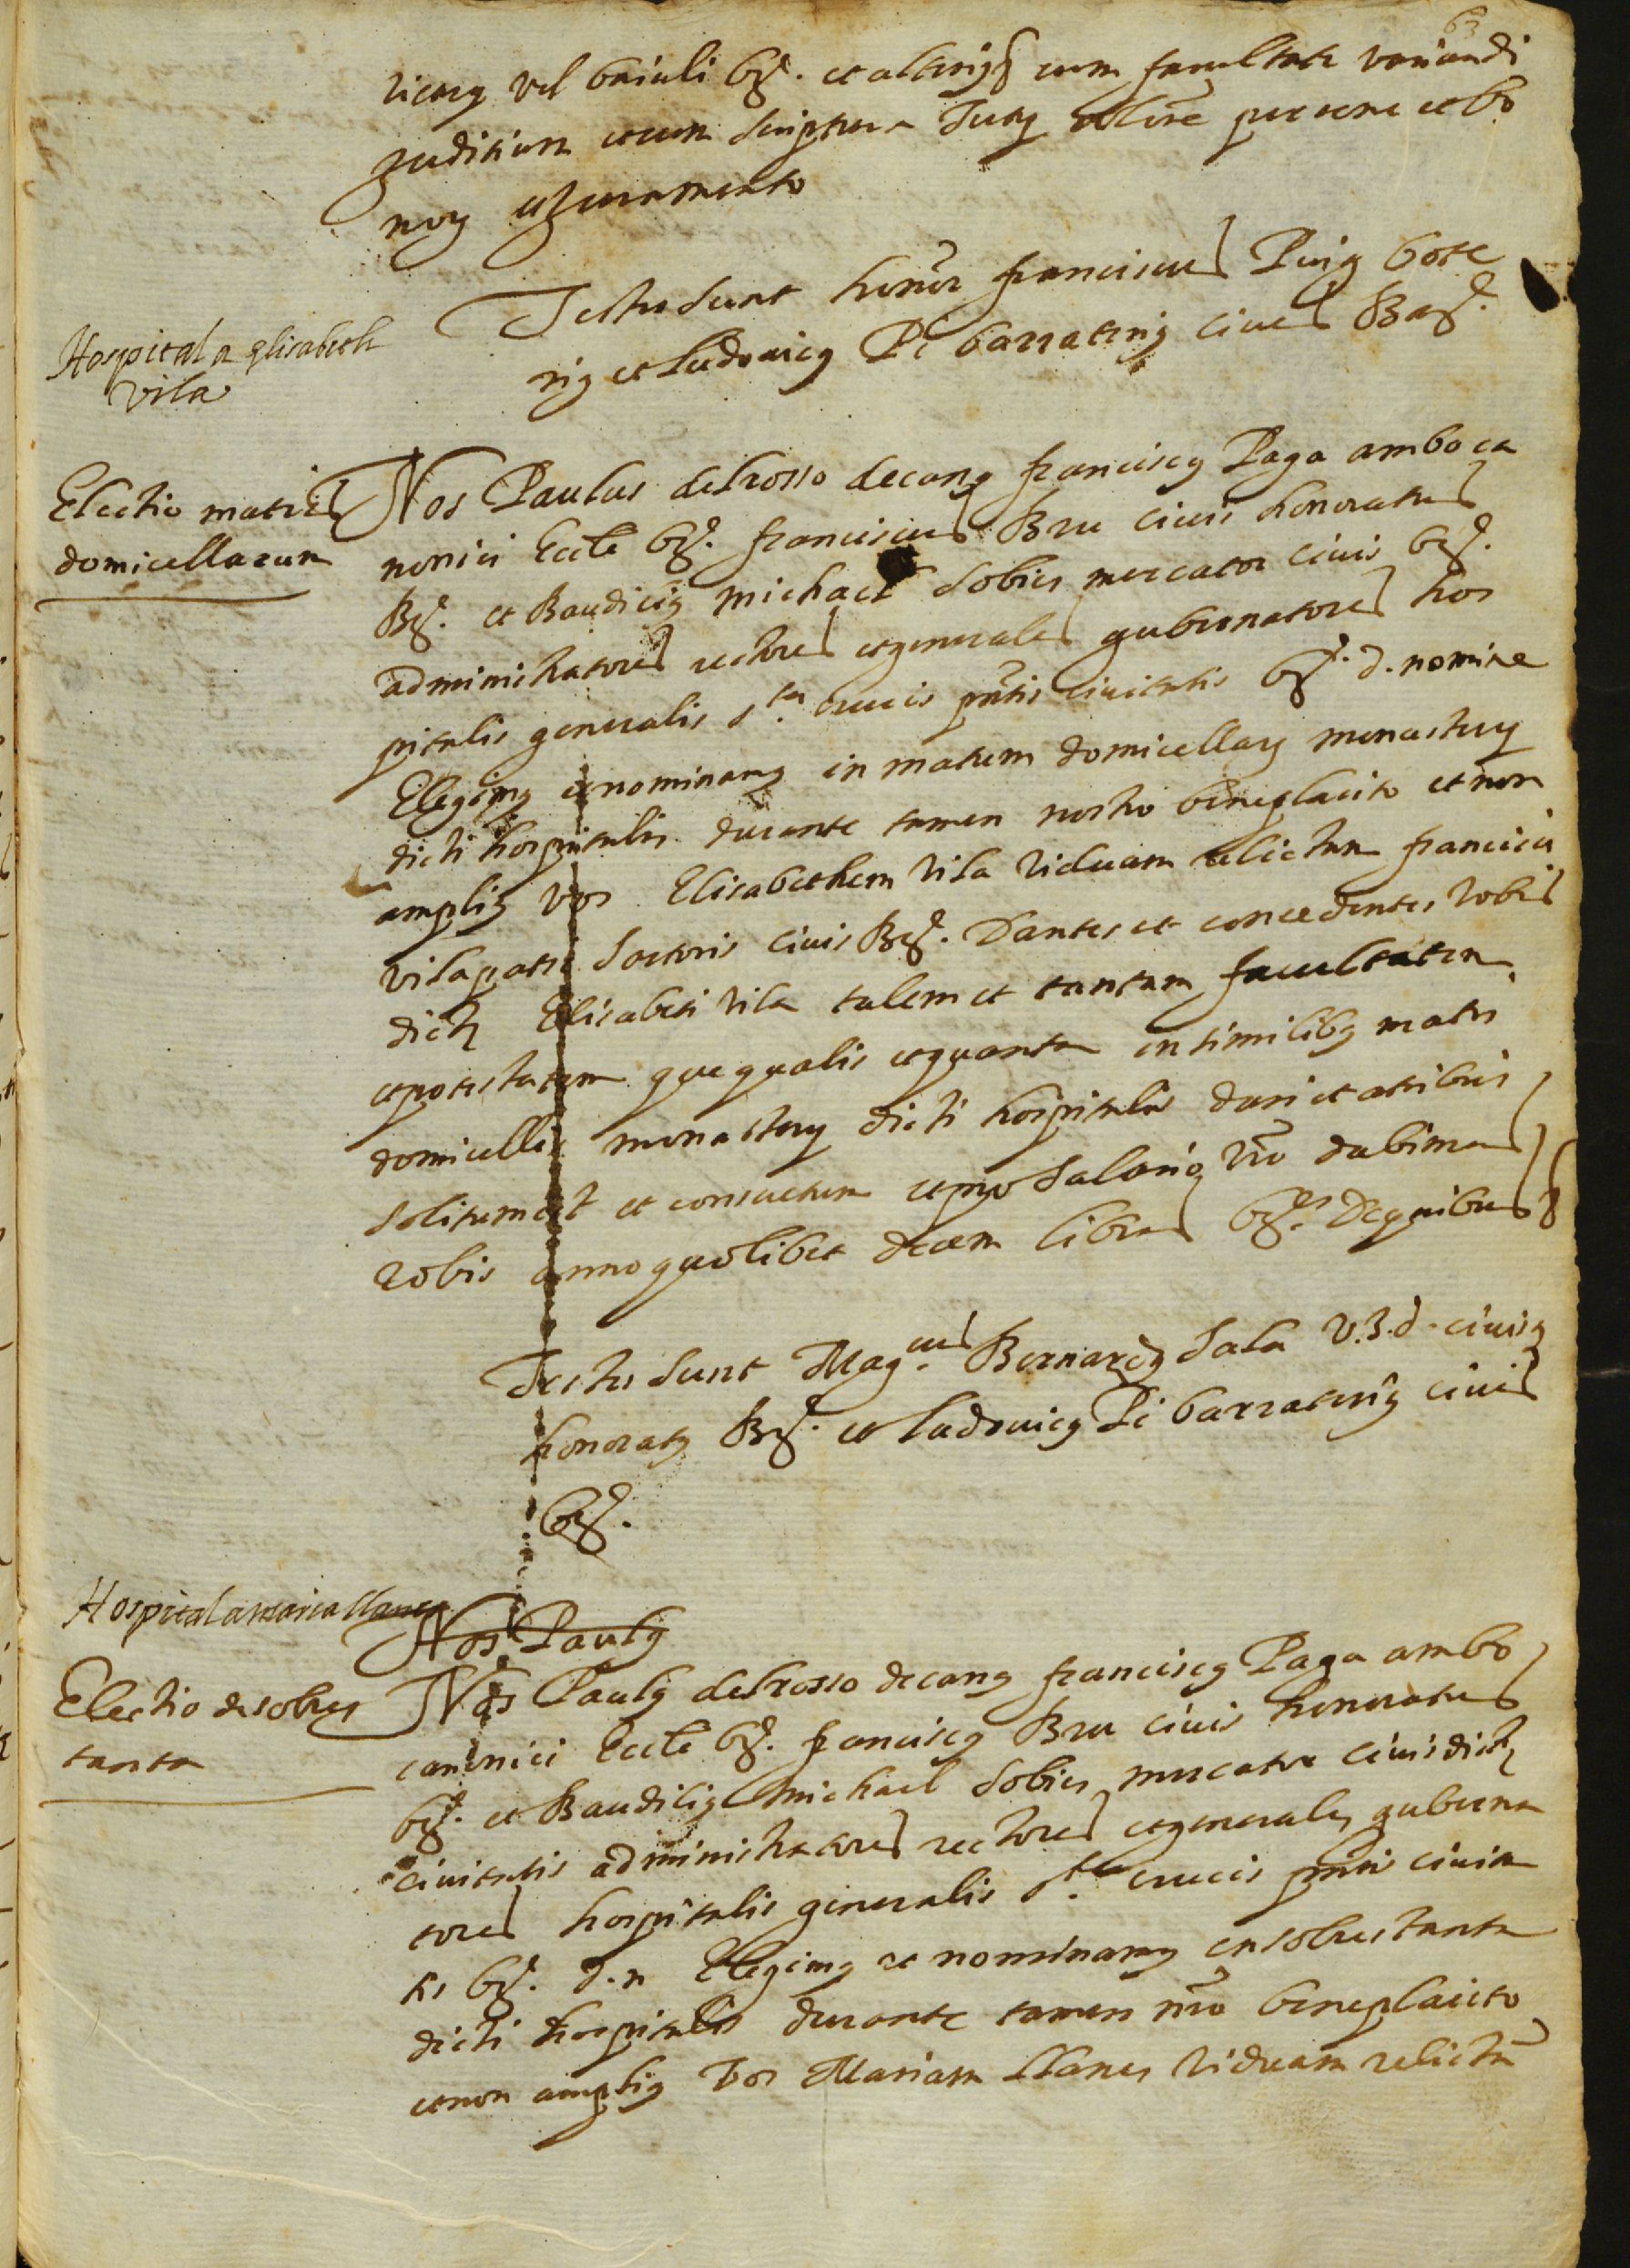 63
vicarij vel baiuli bar. et alterius cum facultate variandi
juditium et cum scriptura tercij obligatione persone et bo
norum et juramento
Testes sunt honor. franciscus Puig bote
rius et Ludovicus Pi barraterius cives Bar.
Hospital a Elisabeth
Vila
Electio matris
domicellarum
Nos Paulus delrosso decanus franciscus Paga ambo ca
nonici Eccle bar. franciscus Bru civis honoratus
Bar. et Baudilius michael Sobies mercator civis bar.
administratores rectores et generales gubernatores hos
pitalis generalis s.te crucis pntis civitatis bar. d. nomine
Elegimus et nominamus in matrem domicellarum monasterij
dicti hospitalis durante tamen nostro beneplacito et non
amplius vos Elisabethem Vila viduam relictam francisci
vila patris sartoris civis Bar. Dantes et concedentes vobis
dicte Elisabeti Vila talem et tantam facultatem
et potestatem que qualis et quanta in similibus matri
domicellis monasterij dicti hospitalis dari et attribui
solitum est et consuetum et pro salario vro dabimus
vobis anno quolibet decem libras bar. De quibus
Testes sunt Mag.cus Bernardus Sala V.J.d. civis
honoratus Bar. et Ludovicus Pi barraterius cives
bar.
Hospital a maria llanes
Electio de sobres
tanta
Nos Paulus
Nos Paulus delrosso decanus franciscus Paga ambo
canonici Eccle bar. franciscus Bru civis honoratus
bar. et Baudilius michael Sobies mercator civis dicte
civitatis administratores rectores et generales guberna
tores hospitalis generalis s.te crucis pntis civita
tis bar. d. n Elegimus et nominamus in sobrestanta
dicti hospitalis durante tamen nro beneplacito
et non amplius Vos Mariam Llanes viduam relictam